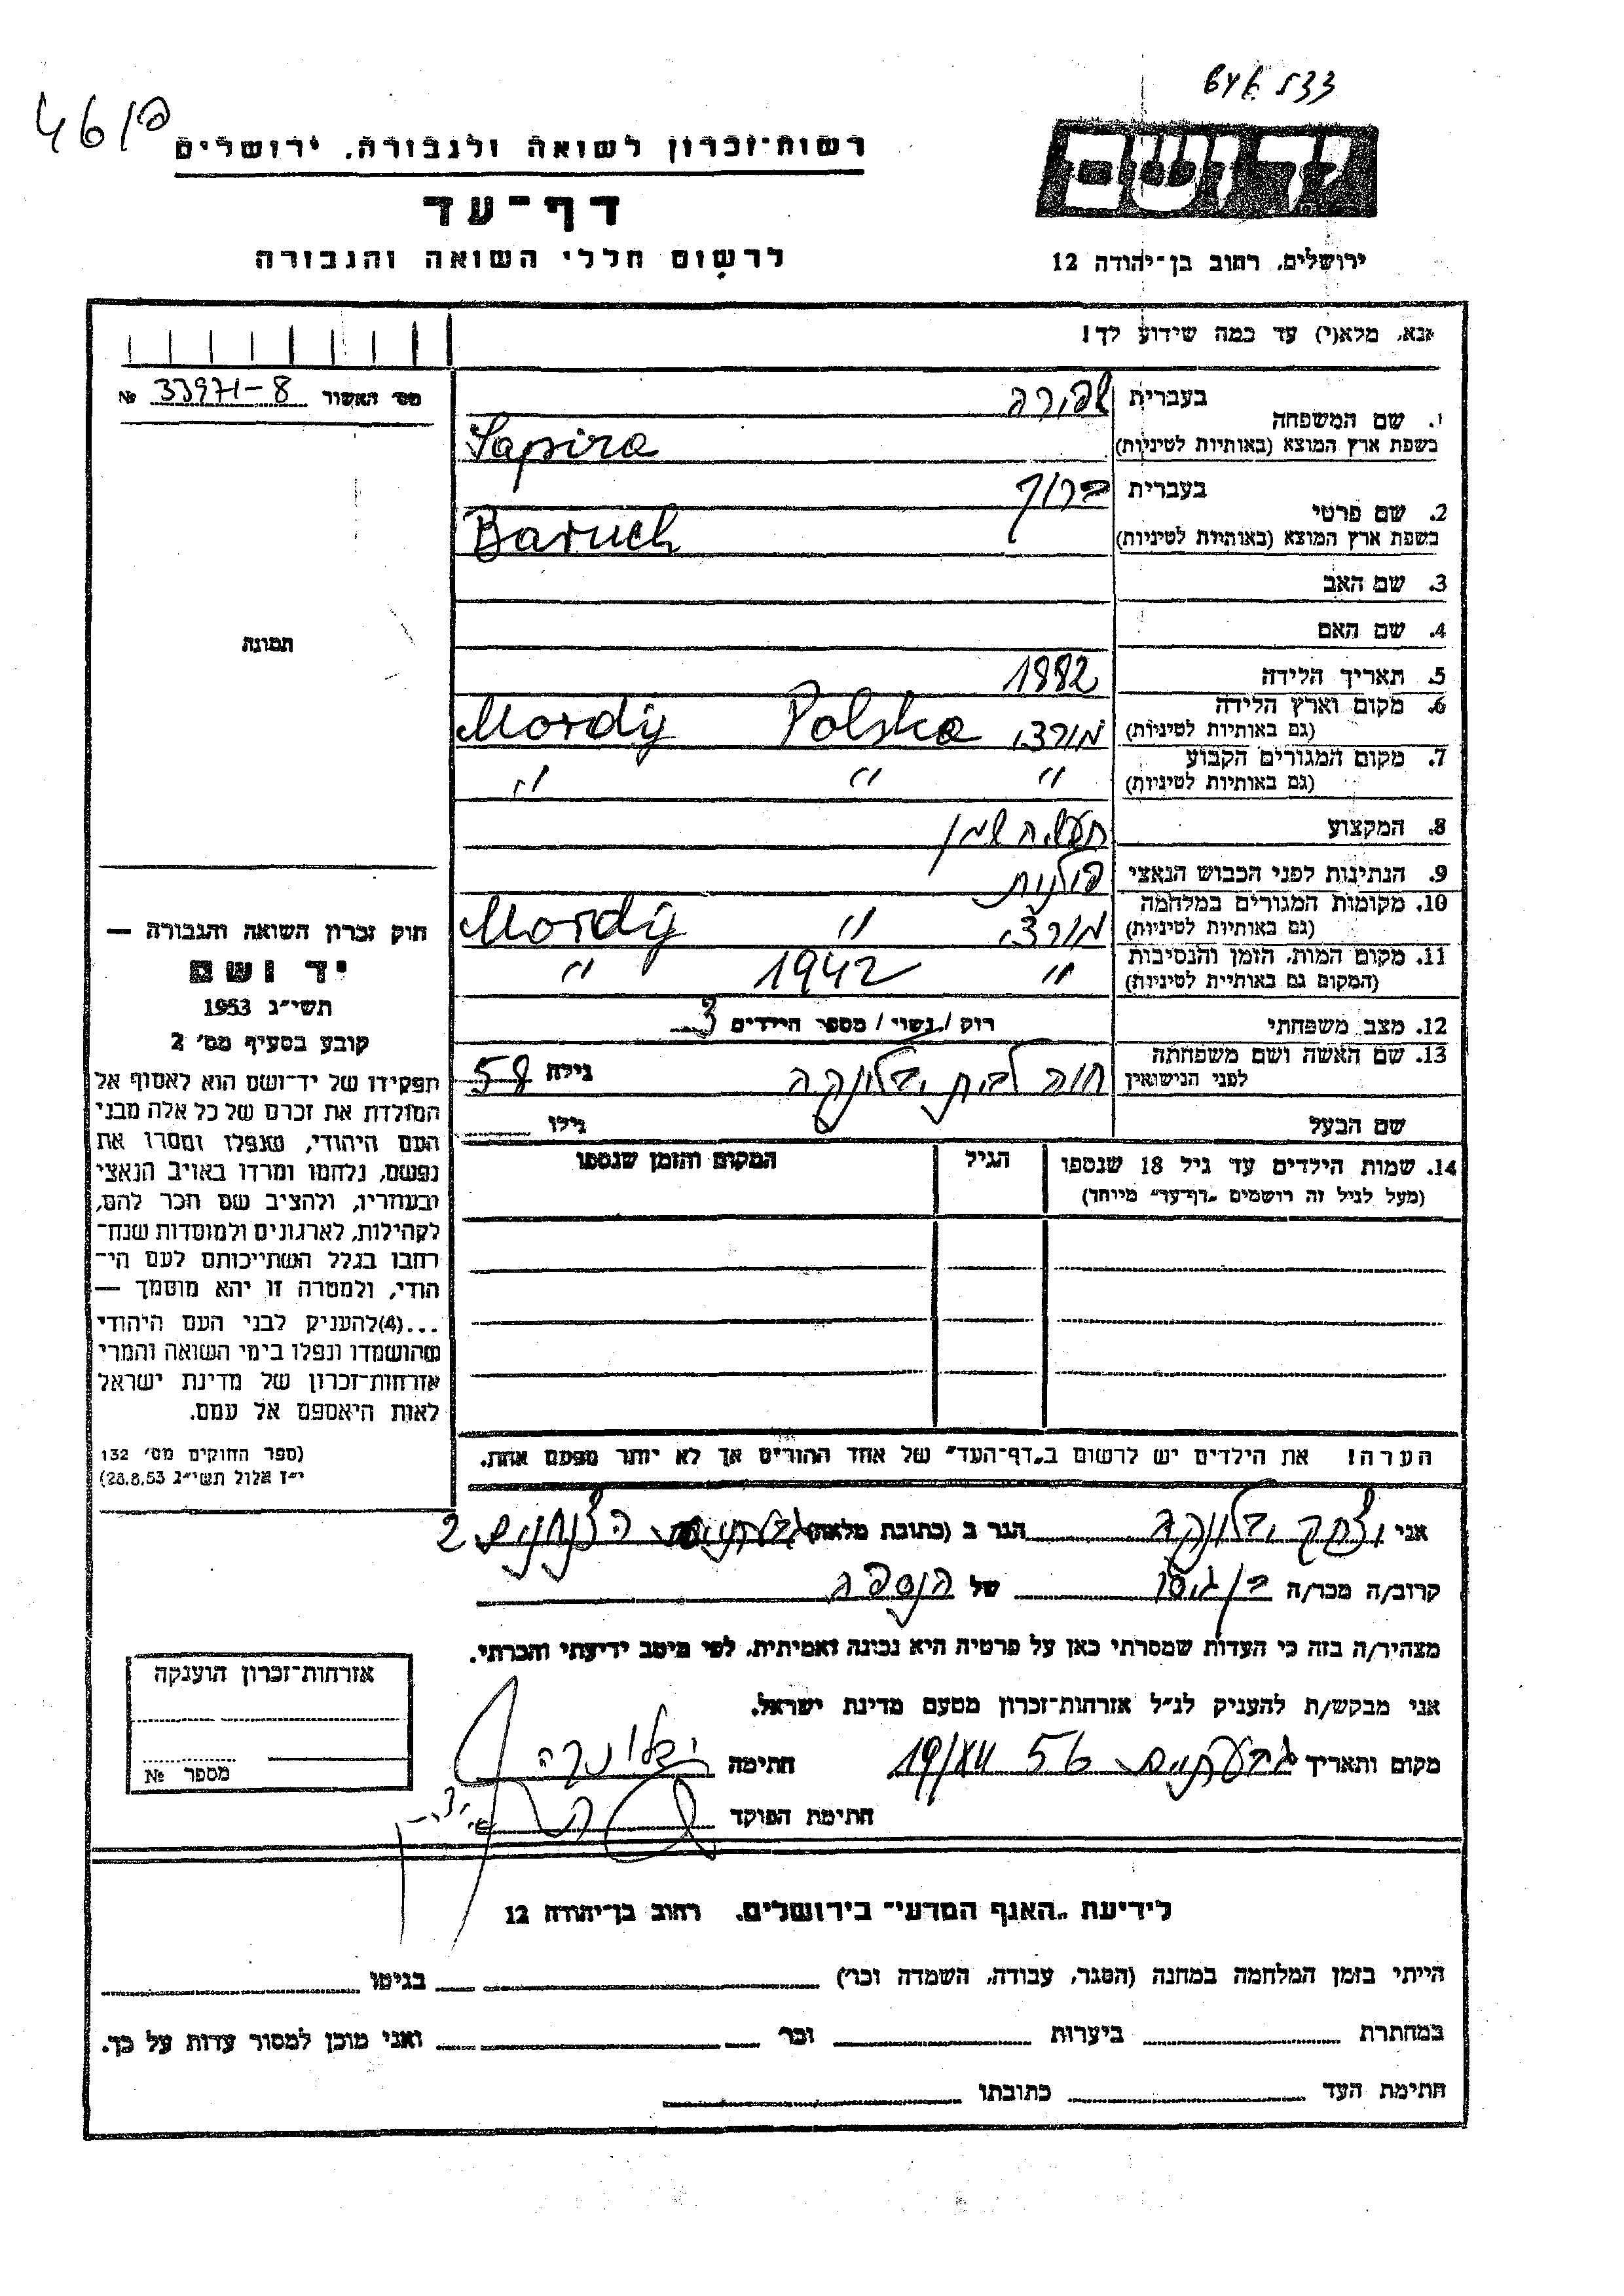 46/פ
רשות־זכרון לשואה ולגבורה. ירושלים
דף־עד
לרשום חללי השואה והגבורה
ירושלים, רחוב בן־יהודה 12
אנא, מלא(י) עד כמה שידוע לך!
מס׳ האשור № 33971-8
1. שם המשפחה
בעברית שפירה
בשפת ארץ המוצא (באותיות לטיניות) Sapira
2. שם פרטי
בעברית ברוך
בשפת ארץ המוצא (באותיות לטיניות) Baruch
3. שם האב
4. שם האם
5. תאריך הלידה 1882
6. מקום וארץ הלידה
(גם באותיות לטיניות) מורדי Polska Mordy
7. מקום המגורים הקבוע
(גם באותיות לטיניות) " " "
8. המקצוע תעשית שמן
9. הנתינות לפני הכבוש הנאצי פולנית
10. מקומות המגורים במלחמה
(גם באותיות לטיניות) מורדי " Mordy
11. מקום המות, הזמן והנסיבות
(המקום גם באותיית לטיניות) " 1942 "
12. מצב משפחתי רוק / נשוי / מספר הילדים 3
13. שם האשה ושם משפחתה
לפני הנישואין חוה לבית יבלונקה גילה 58
שם הבעל גילו
14. שמות הילדים עד גיל 18 שנספו
(מעל לגיל זה רושמים „דף־עד״ מייחד)
הגיל
המקום והזמן שנספו
הערה! את הילדים יש לרשום ב„דף־העד״ של אחד ההורים אך לא יותר מפעם אחת.
תמונה
חוק זכרון השואה והגבורה —
יד ושם
תשי״ג 1953
קובע בסעיף מס׳ 2
תפקידו של יד־ושם הוא לאסוף אל
המולדת את זכרם של כל אלה מבני
העם היהודי, שנפלו ומסרו את
נפשם, נלחמו ומרדו באויב הנאצי
ובעוזריו, ולהציב שם וזכר להם,
לקהילות, לארגונים ולמוסדות שנח־
רחבו בגלל השתייכותם לעם הי־
הודי, ולמטרה זו יהא מוסמך —
...(4)להעניק לבני העם היהודי
שהושמדו ונפלו בימי השואה והמרי
אזרחות־זכרון של מדינת ישראל
לאות היאספם אל עמם.
(ספר החוקים מס׳ 132
י״ז אלול תשי״ג 28.8.53)
אני יצחק יבלונקה הגר ב (כתובת מלאה) גבעתיים הצנחנים 2
קרוב/ה מכר/ה בן גיסו של הנספה
מצהיר/ה בזה כי העדות שמסרתי כאן על פרטיה היא נכונה ואמיתית, לפי מיטב ידיעתי והכרתי.
אני מבקש/ת להעניק לנ״ל אזרחות־זכרון מטעם מדינת ישראל.
מקום ותאריך גבעתיים 19/XII 56 חתימה יבלונקה
חתימת הפוקד
אזרחות־זכרון הוענקה
מספר №
לידיעת „האגף המדעי״ בירושלים. רחוב בן־יהודה 12
הייתי בזמן המלחמה במחנה (הסגר, עבודה, השמדה וכר) בגיטו
במחתרת ביערות וכר ואני מוכן למסור עדות על כך.
חתימת העד כתובתו